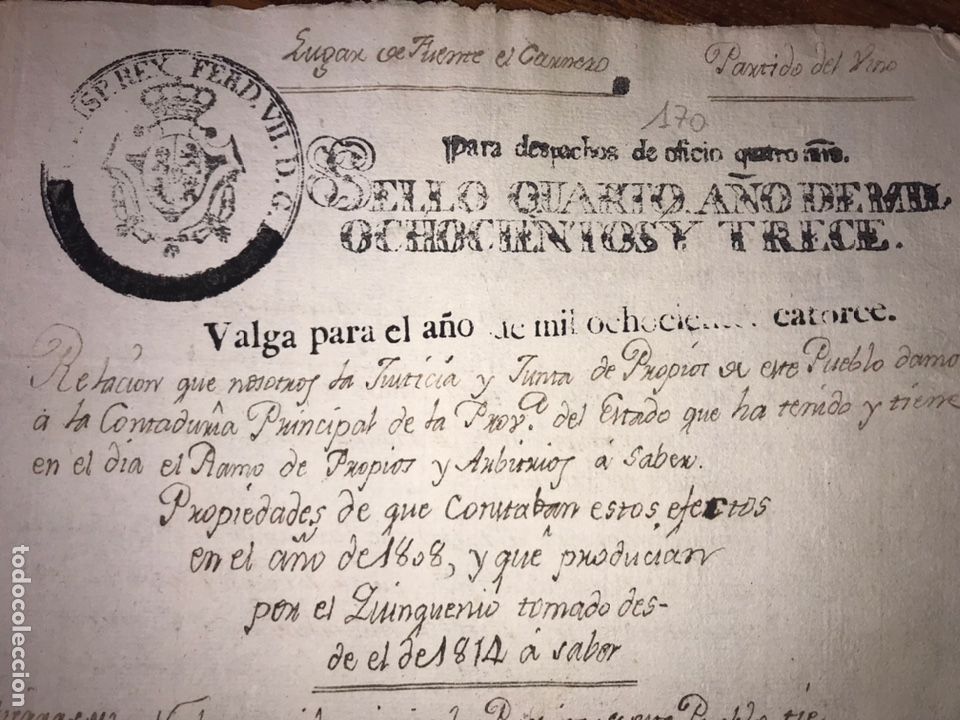 Lugar de Fuente el Carnero
Partido del Vino
170
HISP. REX FERD. VII. D. G.
para despachos de oficio quatro mrs.
SELLO QUARTO, AÑO DE MIL
OCHOCIENTOS Y TRECE.
Valga para el año de mil ochocientos catorce.
Relacion que nosotros la Justicia y Junta de Propios de este Pueblo damos
á la Contaduria Principal de la Prova. del Estado que ha tenido y tiene
en el dia el Ramo de Propios y Arbitrios á saber.
Propiedades de que Constaban estos efectos
en el año de 1808, y que producian
por el Quinquenio tomado des-
de el de 1814 á saber
todocoleccion